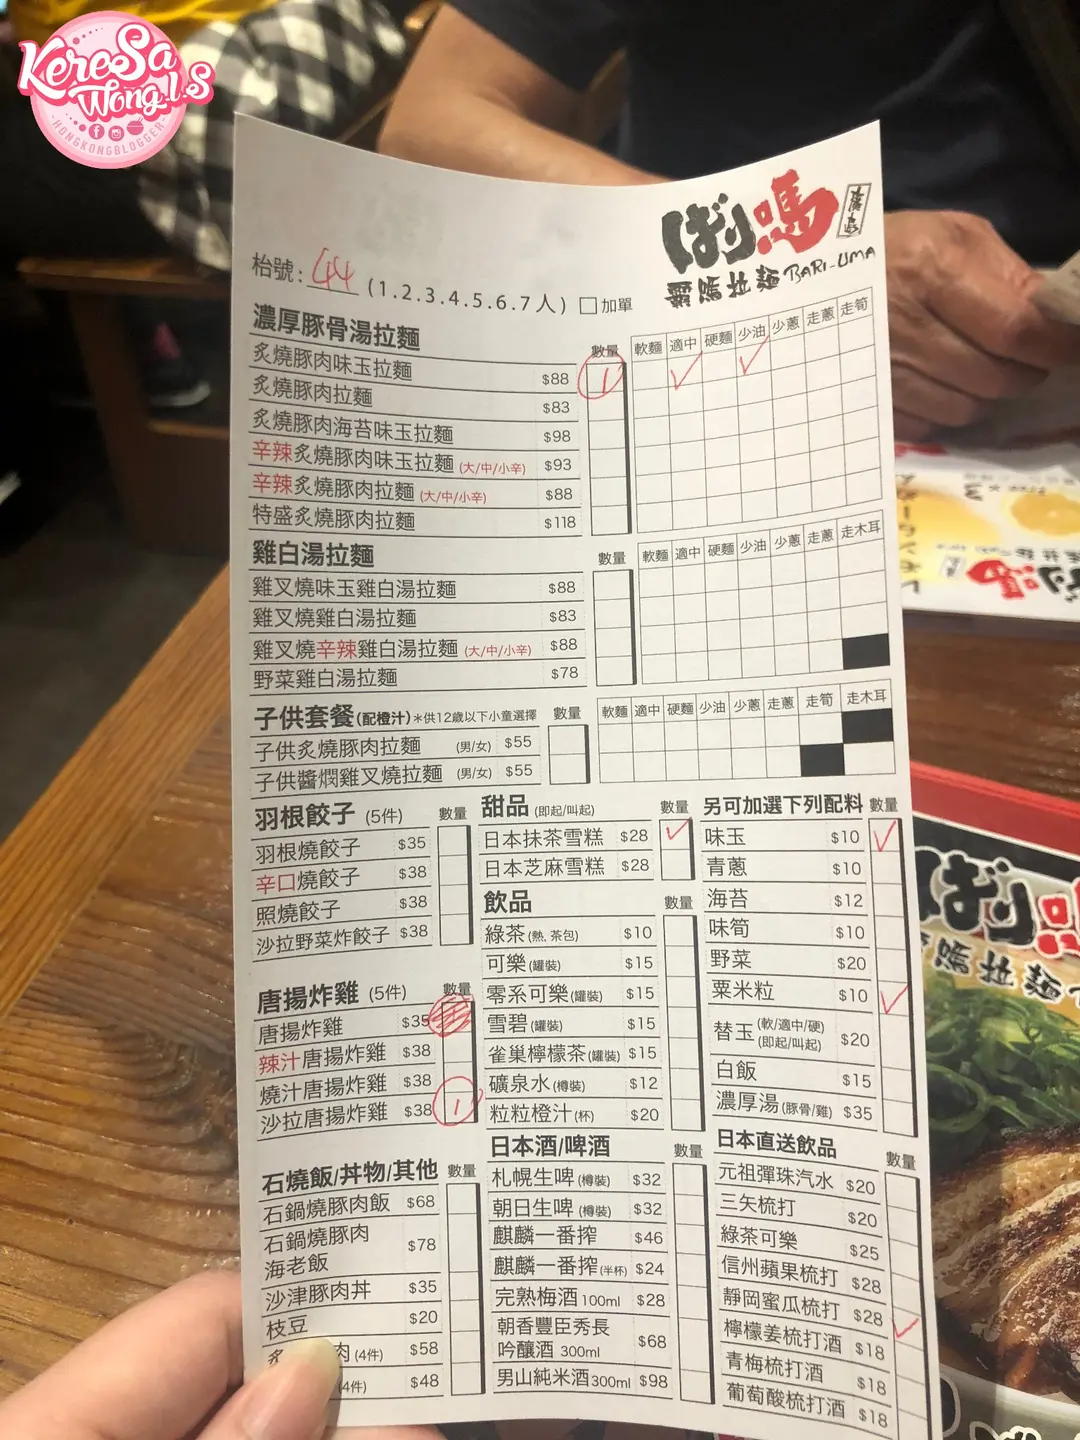 KereSa
Wong.L.S
HONGKONGBLOGGER
ばり嗎
廣島
霸嗎拉麵 BARI-UMA
枱號: 44 (1.2.3.4.5.6.7人) □加單
濃厚豚骨湯拉麵 數量 軟麵 適中 硬麵 少油 少蔥 走蔥 走筍
炙燒豚肉味玉拉麵 $88 1 ✓ ✓
炙燒豚肉拉麵 $83
炙燒豚肉海苔味玉拉麵 $98
辛辣炙燒豚肉味玉拉麵 (大/中/小辛) $93
辛辣炙燒豚肉拉麵 (大/中/小辛) $88
特盛炙燒豚肉拉麵 $118
雞白湯拉麵 數量 軟麵 適中 硬麵 少油 少蔥 走蔥 走木耳
雞叉燒味玉雞白湯拉麵 $88
雞叉燒雞白湯拉麵 $83
雞叉燒辛辣雞白湯拉麵 (大/中/小辛) $88
野菜雞白湯拉麵 $78
子供套餐(配橙汁) *供12歲以下小童選擇 數量 軟麵 適中 硬麵 少油 少蔥 走蔥 走筍 走木耳
子供炙燒豚肉拉麵 (男/女) $55
子供醬燜雞叉燒拉麵 (男/女) $55
羽根餃子 (5件) 數量
羽根燒餃子 $35
辛口燒餃子 $38
照燒餃子 $38
沙拉野菜炸餃子 $38
唐揚炸雞 (5件) 數量
唐揚炸雞 $35
辣汁唐揚炸雞 $38
燒汁唐揚炸雞 $38
沙拉唐揚炸雞 $38 1
石燒飯/丼物/其他 數量
石鍋燒豚肉飯 $68
石鍋燒豚肉
海老飯 $78
沙津豚肉丼 $35
枝豆 $20
炙 肉 (4件) $58
(4件) $48
甜品 (即起/叫起) 數量
日本抹茶雪糕 $28 ✓
日本芝麻雪糕 $28
飲品 數量
綠茶 (熱, 茶包) $10
可樂 (罐裝) $15
零系可樂 (罐裝) $15
雪碧 (罐裝) $15
雀巢檸檬茶 (罐裝) $15
礦泉水 (樽裝) $12
粒粒橙汁 (杯) $20
日本酒/啤酒 數量
札幌生啤 (樽裝) $32
朝日生啤 (樽裝) $32
麒麟一番搾 $46
麒麟一番搾 (半杯) $24
完熟梅酒 100ml $28
朝香豐臣秀長
吟釀酒 300ml $68
男山純米酒 300ml $98
另可加選下列配料 數量
味玉 $10 ✓
青蔥 $10
海苔 $12
味筍 $10
野菜 $20
粟米粒 $10 ✓
替玉 (軟/適中/硬) (即起/叫起) $20
白飯 $15
濃厚湯 (豚骨/雞) $35
日本直送飲品 數量
元祖彈珠汽水 $20
三矢梳打 $20
綠茶可樂 $25
信州蘋果梳打 $28
靜岡蜜瓜梳打 $28 ✓
檸檬姜梳打酒 $18
青梅梳打酒 $18
葡萄酸梳打酒 $18